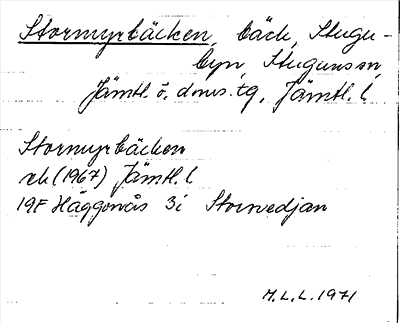 Stormyrbäcken, bäck, Stugu-
byn, Stuguns sn,
Jämtl. ö. doms. tg, Jämtl. l
Stormyrbäcken
rk (1967) Jämtl. l
19F Häggenås 3i Storvedjan
M.L.L. 1971